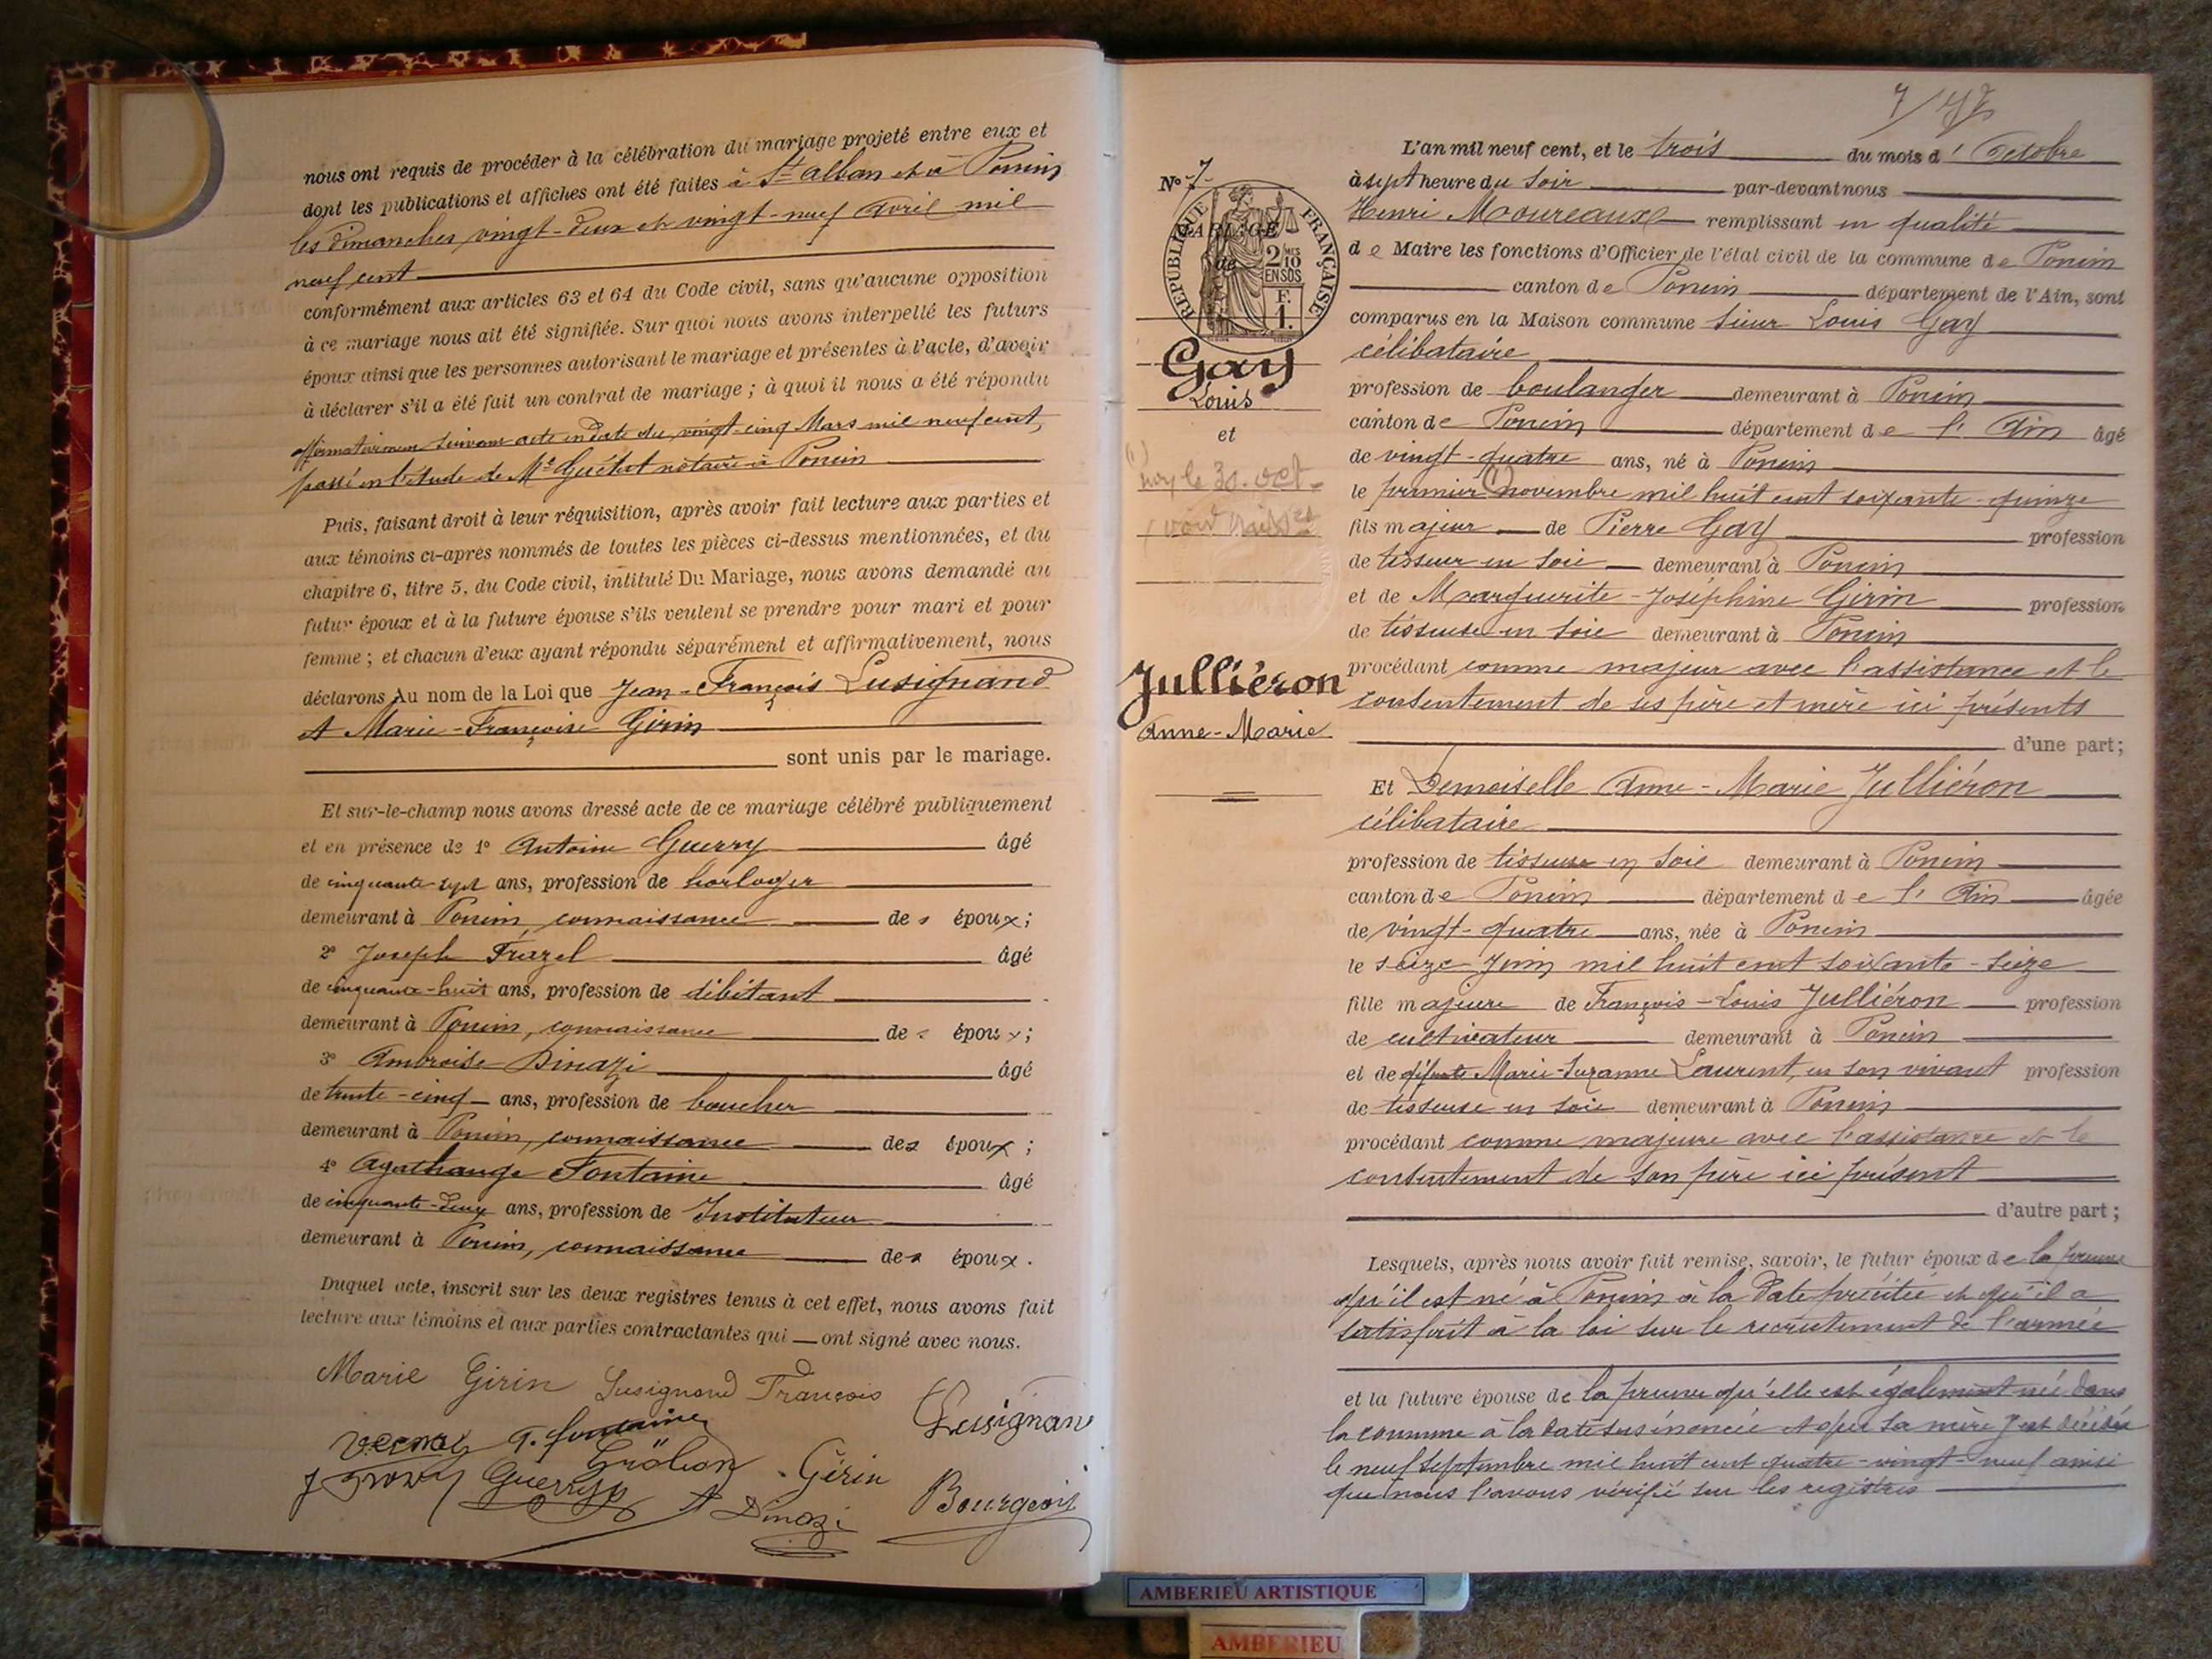 nous ont requis de procéder à la célébration du mariage projeté entre eux et
dont les publications et affiches ont été faites à St alban et à Poncin
les dimanches vingt-deux et vingt-neuf avril mil
neuf cent
conformément aux articles 63 et 64 du Code civil, sans qu'aucune opposition
à ce mariage nous ait été signifiée. Sur quoi nous avons interpellé les futurs
époux ainsi que les personnes autorisant le mariage et présentes à l'acte, d'avoir
à déclarer s'il a été fait un contrat de mariage ; à quoi il nous a été répondu
affirmativement suivant acte en date du vingt-cinq Mars mil neuf cent,
passé en l'étude de Me notaire à Poncin
Puis, faisant droit à leur réquisition, après avoir fait lecture aux parties et
aux témoins ci-après nommés de toutes les pièces ci-dessus mentionnées, et du
chapitre 6, titre 5, du Code civil, intitulé Du Mariage, nous avons demandé au
futur époux et à la future épouse s'ils veulent se prendre pour mari et pour
femme ; et chacun d'eux ayant répondu séparément et affirmativement, nous
déclarons Au nom de la Loi que Jean-François Lusignand
et Marie-Françoise Girin
sont unis par le mariage.
Et sur-le-champ nous avons dressé acte de ce mariage célébré publiquement
et en présence de 1° Antoine Guerry âgé
de cinquante-sept ans, profession de horloger
demeurant à Poncin, connaissance des époux ;
2° Joseph Frazel âgé
de cinquante-huit ans, profession de débitant
demeurant à Poncin, connaissance des époux ;
3° Ambroise Dinazi âgé
de trente-cinq ans, profession de boucher
demeurant à Poncin, connaissance des époux ;
4° Agathange Fontaine âgé
de cinquante-deux ans, profession de Instituteur
demeurant à Poncin, connaissance des époux.
Duquel acte, inscrit sur les deux registres tenus à cet effet, nous avons fait
lecture aux témoins et aux parties contractantes qui ont signé avec nous.
Marie Girin Lusignand François
Lusignand
A. fontaine
Guerry Girin
A Dinazi Bourgeois
7
No 7
RÉPUBLIQUE FRANÇAISE
MARIAGE
de
2/10 EN SUS
F. 1.
Gay
Louis
et
(1)
né le 30 oct
Julliéron
Anne-Marie
L'an mil neuf cent, et le trois du mois d'Octobre
à sept heure du soir par-devant nous
Henri Moureaux remplissant en qualité
de Maire les fonctions d'Officier de l'état civil de la commune de Poncin
canton de Poncin département de l'Ain, sont
comparus en la Maison commune sieur Louis Gay
célibataire
profession de boulanger demeurant à Poncin
canton de Poncin département de l'Ain âgé
de vingt-quatre ans, né à Poncin
le premier (1) novembre mil huit cent soixante-quinze
fils majeur de Pierre Gay profession
de tisseur en soie demeurant à Poncin
et de Marguerite-Joséphine Girin profession
de tisseuse en soie demeurant à Poncin
procédant comme majeur avec l'assistance et le
consentement de ses père et mère ici présents
d'une part ;
Et Demoiselle Anne-Marie Julliéron
célibataire
profession de tisseuse en soie demeurant à Poncin
canton de Poncin département de l'Ain âgée
de vingt-quatre ans, née à Poncin
le seize Juin mil huit cent soixante-seize
fille majeure de François-Louis Julliéron profession
de cultivateur demeurant à Poncin
et de défunte Marie-Suzanne Laurent, en son vivant profession
de tisseuse en soie demeurant à Poncin
procédant comme majeure avec l'assistance et le
consentement de son père ici présent
d'autre part ;
Lesquels, après nous avoir fait remise, savoir, le futur époux de la preuve
qu'il est né à Poncin à la date précitée et qu'il a
satisfait à la loi sur le recrutement de l'armée
et la future épouse de la preuve qu'elle est également née dans
la commune à la date susénoncée et que sa mère y est décédée
le neuf Septembre mil huit cent quatre-vingt-neuf ainsi
que nous l'avons vérifié sur les registres
AMBERIEU ARTISTIQUE
AMBERIEU